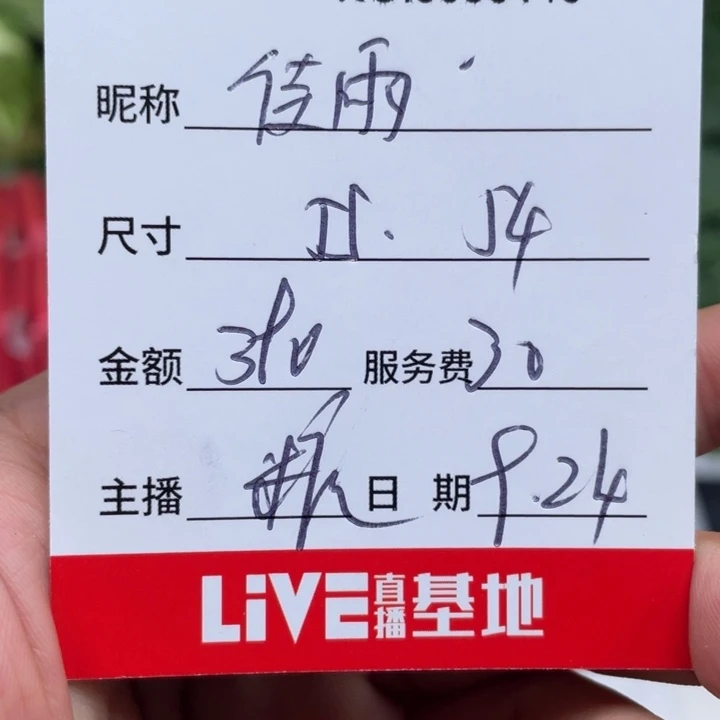 昵称 佳雨
尺寸 51. 54
金额 390 服务费 30
主播 日 期 9.24
LiVE直播基地